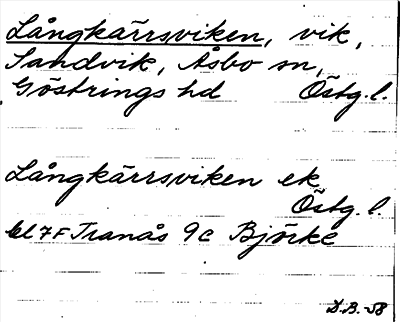 Långkärrsviken, vik,
Sandvik, Åsbo sn,
Göstrings hd Östg.l.
Långkärrsviken ek
Östg.l.
bl 7F Tranås 9c Björke
D.B.-58